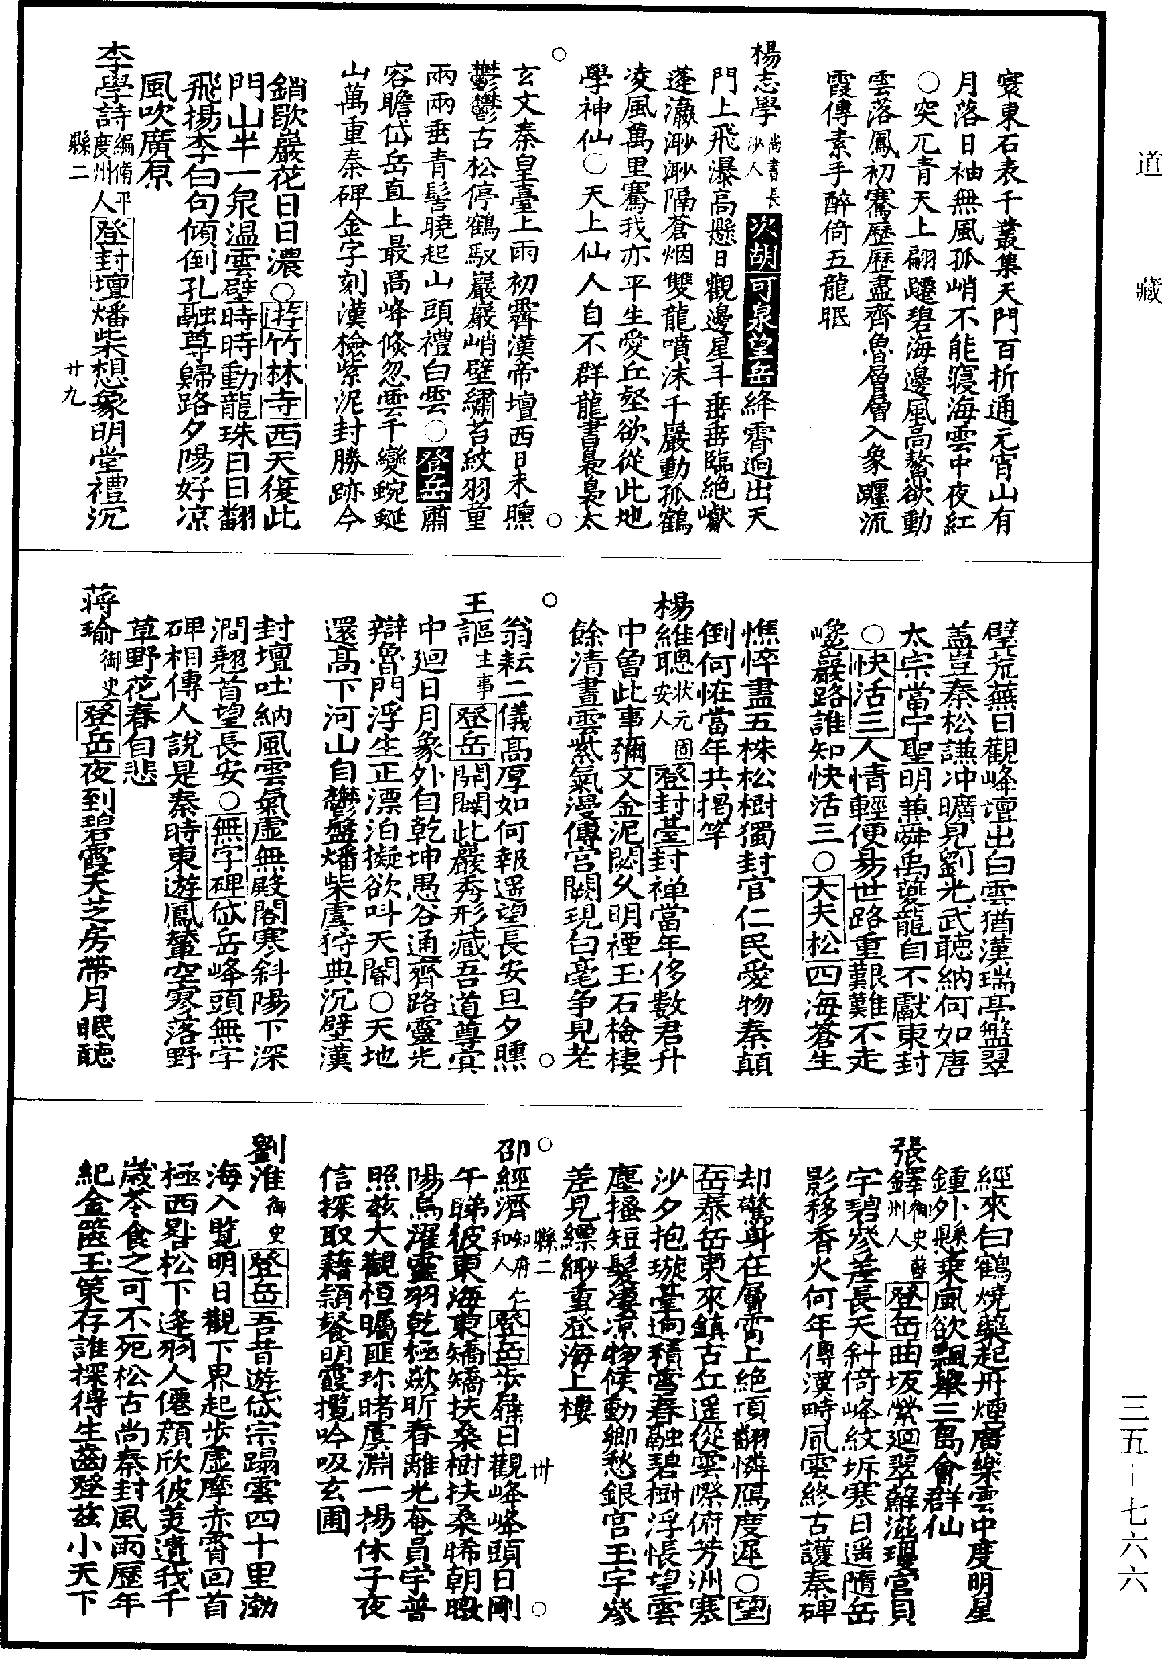 道藏
寰東石表千叢集天門百折通元宵山有
月落日袖無風孤峭不能寢海雲中夜紅
○突兀青天上翩躚碧海邊風高鰲欲動
雲落鳳初騫歷歷盡齊魯層層入象躔流
霞傳素手醉倚五龍眠
楊志學尚書長沙人次胡可泉望岳絳霄逈出天
門上飛瀑高懸日觀邊星斗垂垂臨絶巘
蓬瀛渺渺隔蒼烟雙龍噴沫千巖動孤鶴
凌風萬里騫我亦平生愛丘壑欲從此地
學神仙○天上仙人自不群龍書裊裊太
玄文秦皇臺上雨初霽漢帝壇西日未曛
鬱鬱古松停鶴馭巖巖峭壁繡苔紋羽童
兩兩垂青髻曉起山頭禮白雲○登岳肅
容瞻岱岳直上最高峰倏忽雲千變蜿蜒
山萬重秦碑金字刻漢檢紫泥封勝跡今
銷歇巖花日日濃○遊竹林寺西天復此
門山半一泉溫雲壁時時動龍珠日日翻
飛揚李白句傾倒孔融尊歸路夕陽好凉
風吹廣原
李學詩編脩平度州人登封壇燔柴想象明堂禮沉
縣二 廿九
璧荒蕪日觀峰壇出白雲猶漢瑞亭盤翠
蓋豈秦松謙冲曠見劉光武聽納何如唐
太宗當宁聖明兼舜禹夔龍自不獻東封
○快活三人情輕便易世路重艱難不走
巉巖路誰知快活三○大夫松四海蒼生
憔悴盡五株松樹獨封官仁民愛物秦顛
倒何怪當年共揭竿
楊維聰狀元固安人登封臺封禅當年侈數君升
中曾此事彌文金泥閟久明禋玉石檢棲
餘清晝雲紫氣漫傳宫闕現白毫争見老
翁耘二儀高厚如何報遥望長安旦夕曛
王謳主事登岳開闢此巖秀形藏吾道尊賓
中廻日月象外自乾坤愚谷通齊路靈光
辯魯門浮生正漂泊擬欲叫天閽○天地
還高下河山自鬱盤燔柴虞狩典沉壁漢
封壇吐納風雲氣虚無殿閣寒斜陽下深
澗翹首望長安○無字碑岱岳峰頭無字
碑相傳人說是秦時東遊鳳輦空寥落野
草野花春自悲
蔣瑜御史登岳夜到碧霞天芝房帶月眠聽
經來白鶴燒藥起丹煙廣樂雲中度明星
鍾外懸乘風欲飄舉三島會群仙
張鐸登岳曲坂縈廻翠蘚滋瓊宫貝
宇碧參差長天斜倚峰紋坼寒日遥隨岳
影移香火何年傳漢畤風雲終古護秦碑
却驚身在層霄上絶頂翻憐鴈度遲○望
岳泰岳東來鎮古丘遥從雲際俯芳洲寒
沙夕抱璇臺逈積雪春融碧樹浮悵望雲
塵搔短髪凄凉物候動鄉愁銀宫玉宇參
差見縹緲重登海上樓
縣二 卅
邵經濟知府仁和人登岳步屧日觀峰峰頭日剛
午睇彼東海東矯矯扶桑樹扶桑晞朝暾
陽烏濯靈羽乾極歘昕春離光奄員宇普
照兹大觀恒矚匪珎睹虞淵一塲休子夜
信探取藉頴餐明霞攬吟吸玄圃
劉淮御史登岳吾昔遊岱宗蹋雲四十里渤
海入覧明日觀下界起步虚摩赤霄回首
極西昣松下逢羽人僊顔欣彼美遺我千
歳苓食之可不死松古尚秦封風雨歷年
紀金匱玉策存誰探得生齒登兹小天下
三五-七六六